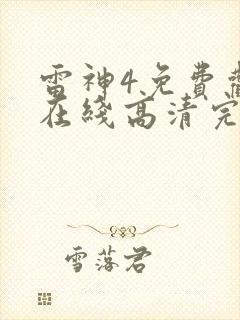 雷神4免费
在线高清完
雪落君